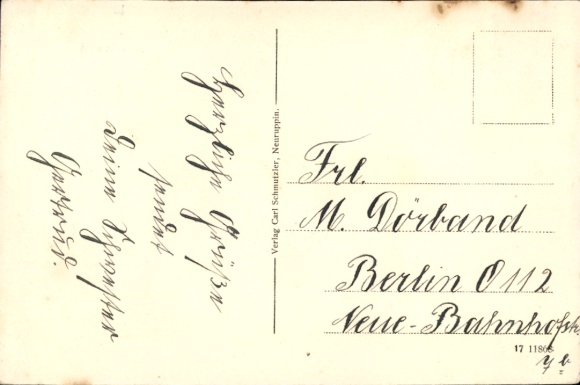 Herzliche Grüße
sendet
Deine Schwester
Gertrud.
Verlag Carl Schmutzler, Neuruppin.
Frl.
M. Dörband
Berlin O 112
Neue-Bahnhofstr.
17 11868